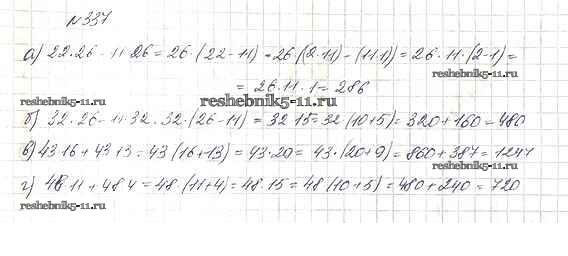 №337
а) 22·26 - 11·26 = 26·(22-11) = 26(2·11) - (11·1)) = 26·11·(2-1) =
= 26·11·1 = 286
reshebnik5-11.ru
reshebnik5-11.ru
reshebnik5-11.ru
б) 32·26 - 11·32. 32·(26-11) = 32·15 = 32(10+5) = 320+160 = 480
в) 43·16 + 43·13 = 43(16+13) = 43·20 = 43·(20+9) = 860+387 = 1247
reshebnik5-11.ru
г) 48·11 + 48·4 = 48·(11+4) = 48·15 = 48(10+5) = 480+240 = 720
reshebnik5-11.ru